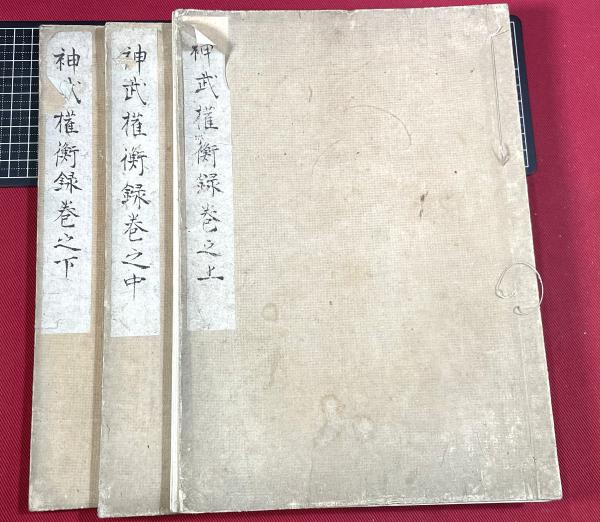 神武權衡録巻之上
神武權衡録巻之中
神武權衡録巻之下